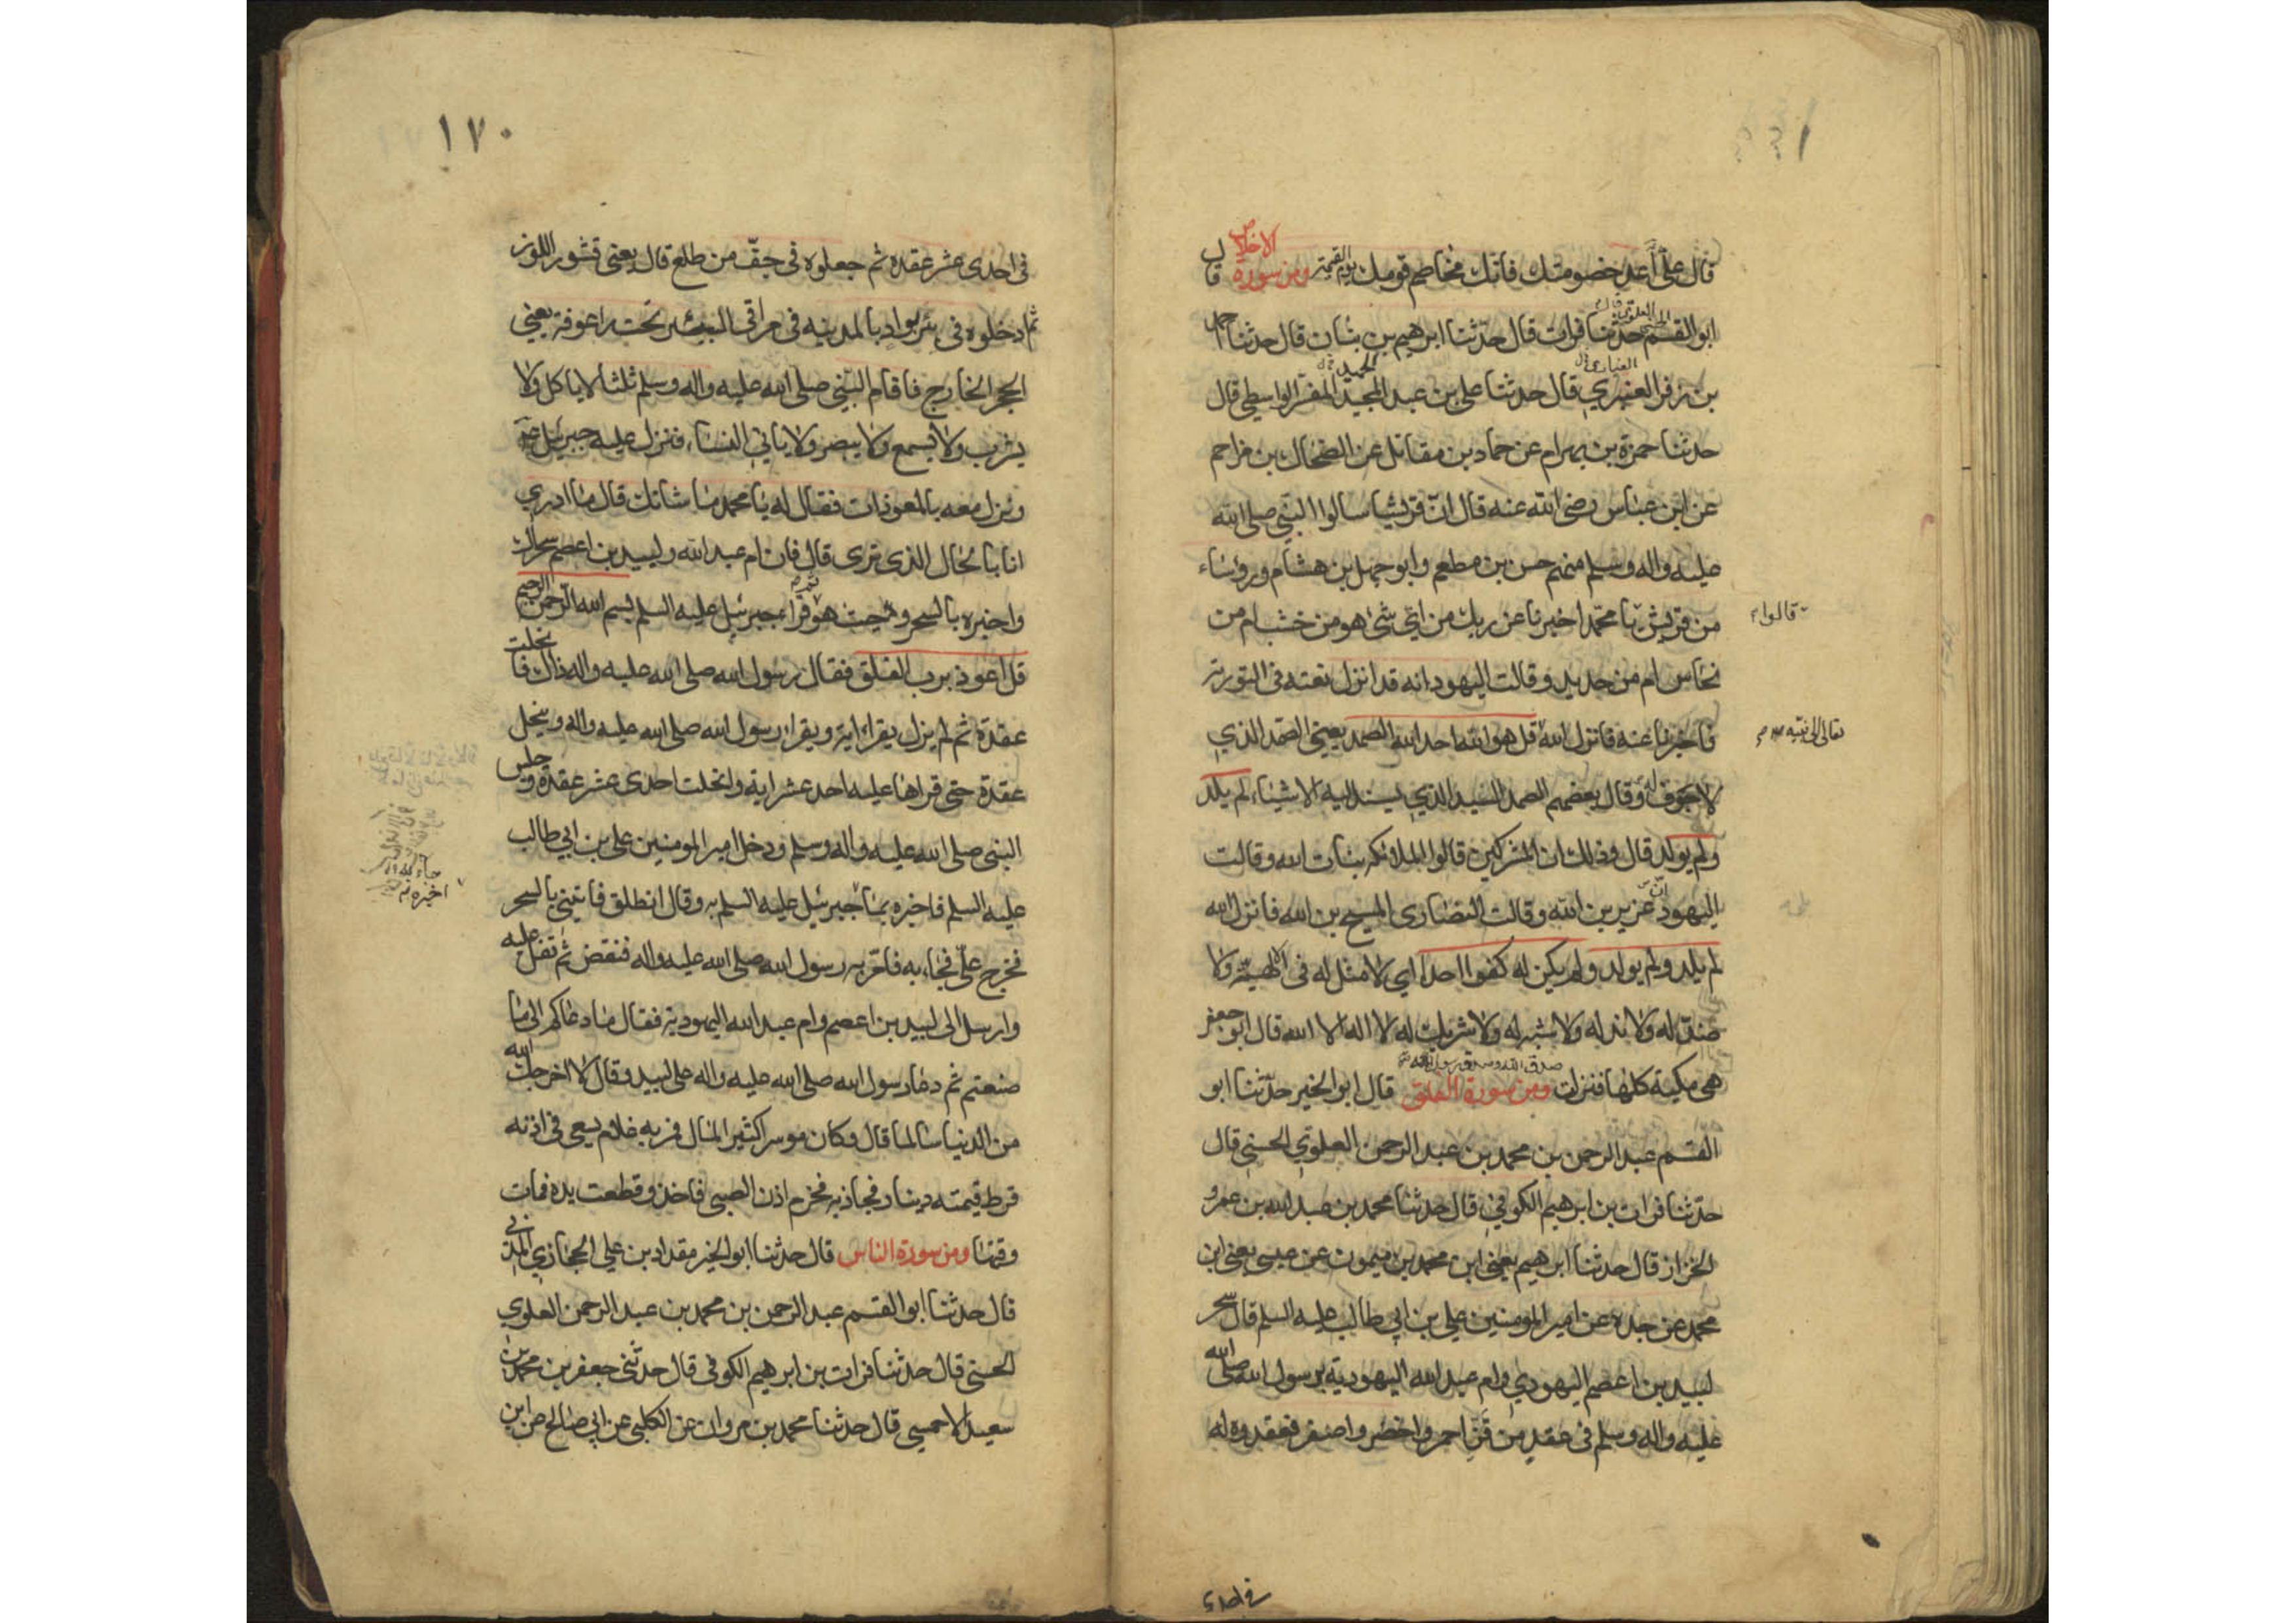 قال علي أعد خصومتك فانك مخاصم قومك يوم القيمة ومن سورة الاخلاص قال
ابو القسم العلوي الحسني قال حدثنا فرات قال حدثنا ابرهيم بن بنان قال حدثنا
بن زفر العنبري قال حدثنا علي بن عبد المجيد المفسر الواسطي قال
حدثنا حمزة بن بهرام عن حماد بن مقاتل عن الضحاك بن مزاحم
عن ابن عباس رضى الله عنه قال ان قريشا سالوا النبي صلى الله
عليه واله وسلم منهم حسن بن مطعم وابو جهل بن هشام ورؤساء
من قريش يا محمد اخبرنا عن ربك من اي شئ هو من خشب ام من
قالوا
نحاس ام من حديد وقالت اليهود انه قد انزل نعته في التورية
فاخبرنا عنه فانزل الله قل هو الله احد الله الصمد يعني الصمد الذي
تعالى الى نبيه
لا جوف له وقال بعضهم الصمد السيد الذي يسند اليه الاشياء لم يلد
ولم يولد قال وذلك ان المشركين قالوا الملائكه بنات الله وقالت
اليهود ان عزير بن الله وقالت النصارى المسيح بن الله فانزل الله
لم يلد ولم يولد ولم يكن له كفوا احد اي لا مثل له في الالهية ولا
ضد له ولا ند له ولا شبه له ولا شريك له لا اله الا الله قال ابو جعفر
هي مكية كلها فنزلت ومن سورة الفلق قال ابو الخير حدثنا ابو
القسم عبد الرحمن بن محمد بن عبد الرحمن العلوي الحسني قال
حدثنا فرات بن ابرهيم الكوفي قال حدثنا محمد بن عبد الله بن عمرو
الخزاز قال حدثنا ابرهيم يعني ابن محمد بن ميمون عن عيسى يعني ابن
محمد عن جده عن امير المومنين علي بن ابي طالب عليه السلم قال سحر
لبيد بن اعصم اليهودي وام عبد الله اليهودية برسول الله صلى الله
عليه واله وسلم في عقد من قز احمر واخضر واصفر فعقدوه له
في احدى
١٧٠
في احدى عشر عقدة ثم جعلوه في جف من طلع قال يعني قشور اللوز
ثم ادخلوه في بئر بواد بالمدينه في مراقى البئر تحت راعوفة يعني
الحجر الخارج فاقام النبي صلى الله عليه واله وسلم ثلثا لا ياكل ولا
يشرب ولا يسمع ولا يبصر ولا ياتي النساء فنزل عليه جبرئيل ع
ونزل معه بالمعوذات فقال له يا محمد ما شانك قال ما ادري
انا بالحال الذي ترى قال فان ام عبد الله ولبيد بن اعصم سحراك
واخبره بالسحر وحيث هو ثم قراء جبرئيل عليه السلم بسم الله الرحمن الرحيم
قل اعوذ برب الفلق فقال رسول الله صلى الله عليه واله ذاك فانحلت
عقدة ثم لم يزل يقراء اية ويقراء رسول الله صلى الله عليه واله وينحل
عقدة حتى قراها عليه احد عشر اية وانحلت احدى عشر عقدة وجلس
النبي صلى الله عليه واله وسلم ودخل امير المومنين علي بن ابي طالب
عليه السلم فاخبره بما جبرئيل عليه السلم به وقال انطلق فاتيني بالسحر
فخرج علي فجاء به فامر به رسول الله صلى الله عليه واله فنقض ثم تفل عليه
وارسل الى لبيد بن اعصم وام عبد الله اليهودية فقال ما دعاكم الى ما
صنعتم ثم دعا رسول الله صلى الله عليه واله على لبيد وقال لا اخرجك الله
من الدنيا سالما قال وكان موسرا كثير المال فمر به غلام يسعى في اذنه
قرط قيمته دينار فجاذبه فخرم اذن الصبي فاخذ وقطعت يده فمات
وقتها ومن سورة الناس قال حدثنا ابو الخير مقداد بن علي الحجازي المدني
قال حدثنا ابو القسم عبد الرحمن بن محمد بن عبد الرحمن العلوي
الحسني قال حدثنا فرات بن ابرهيم الكوفي قال حدثني جعفر بن محمد بن
سعيد الاحمسي قال حدثنا محمد بن مروان عن الكلبي عن ابي صالح عن ابن